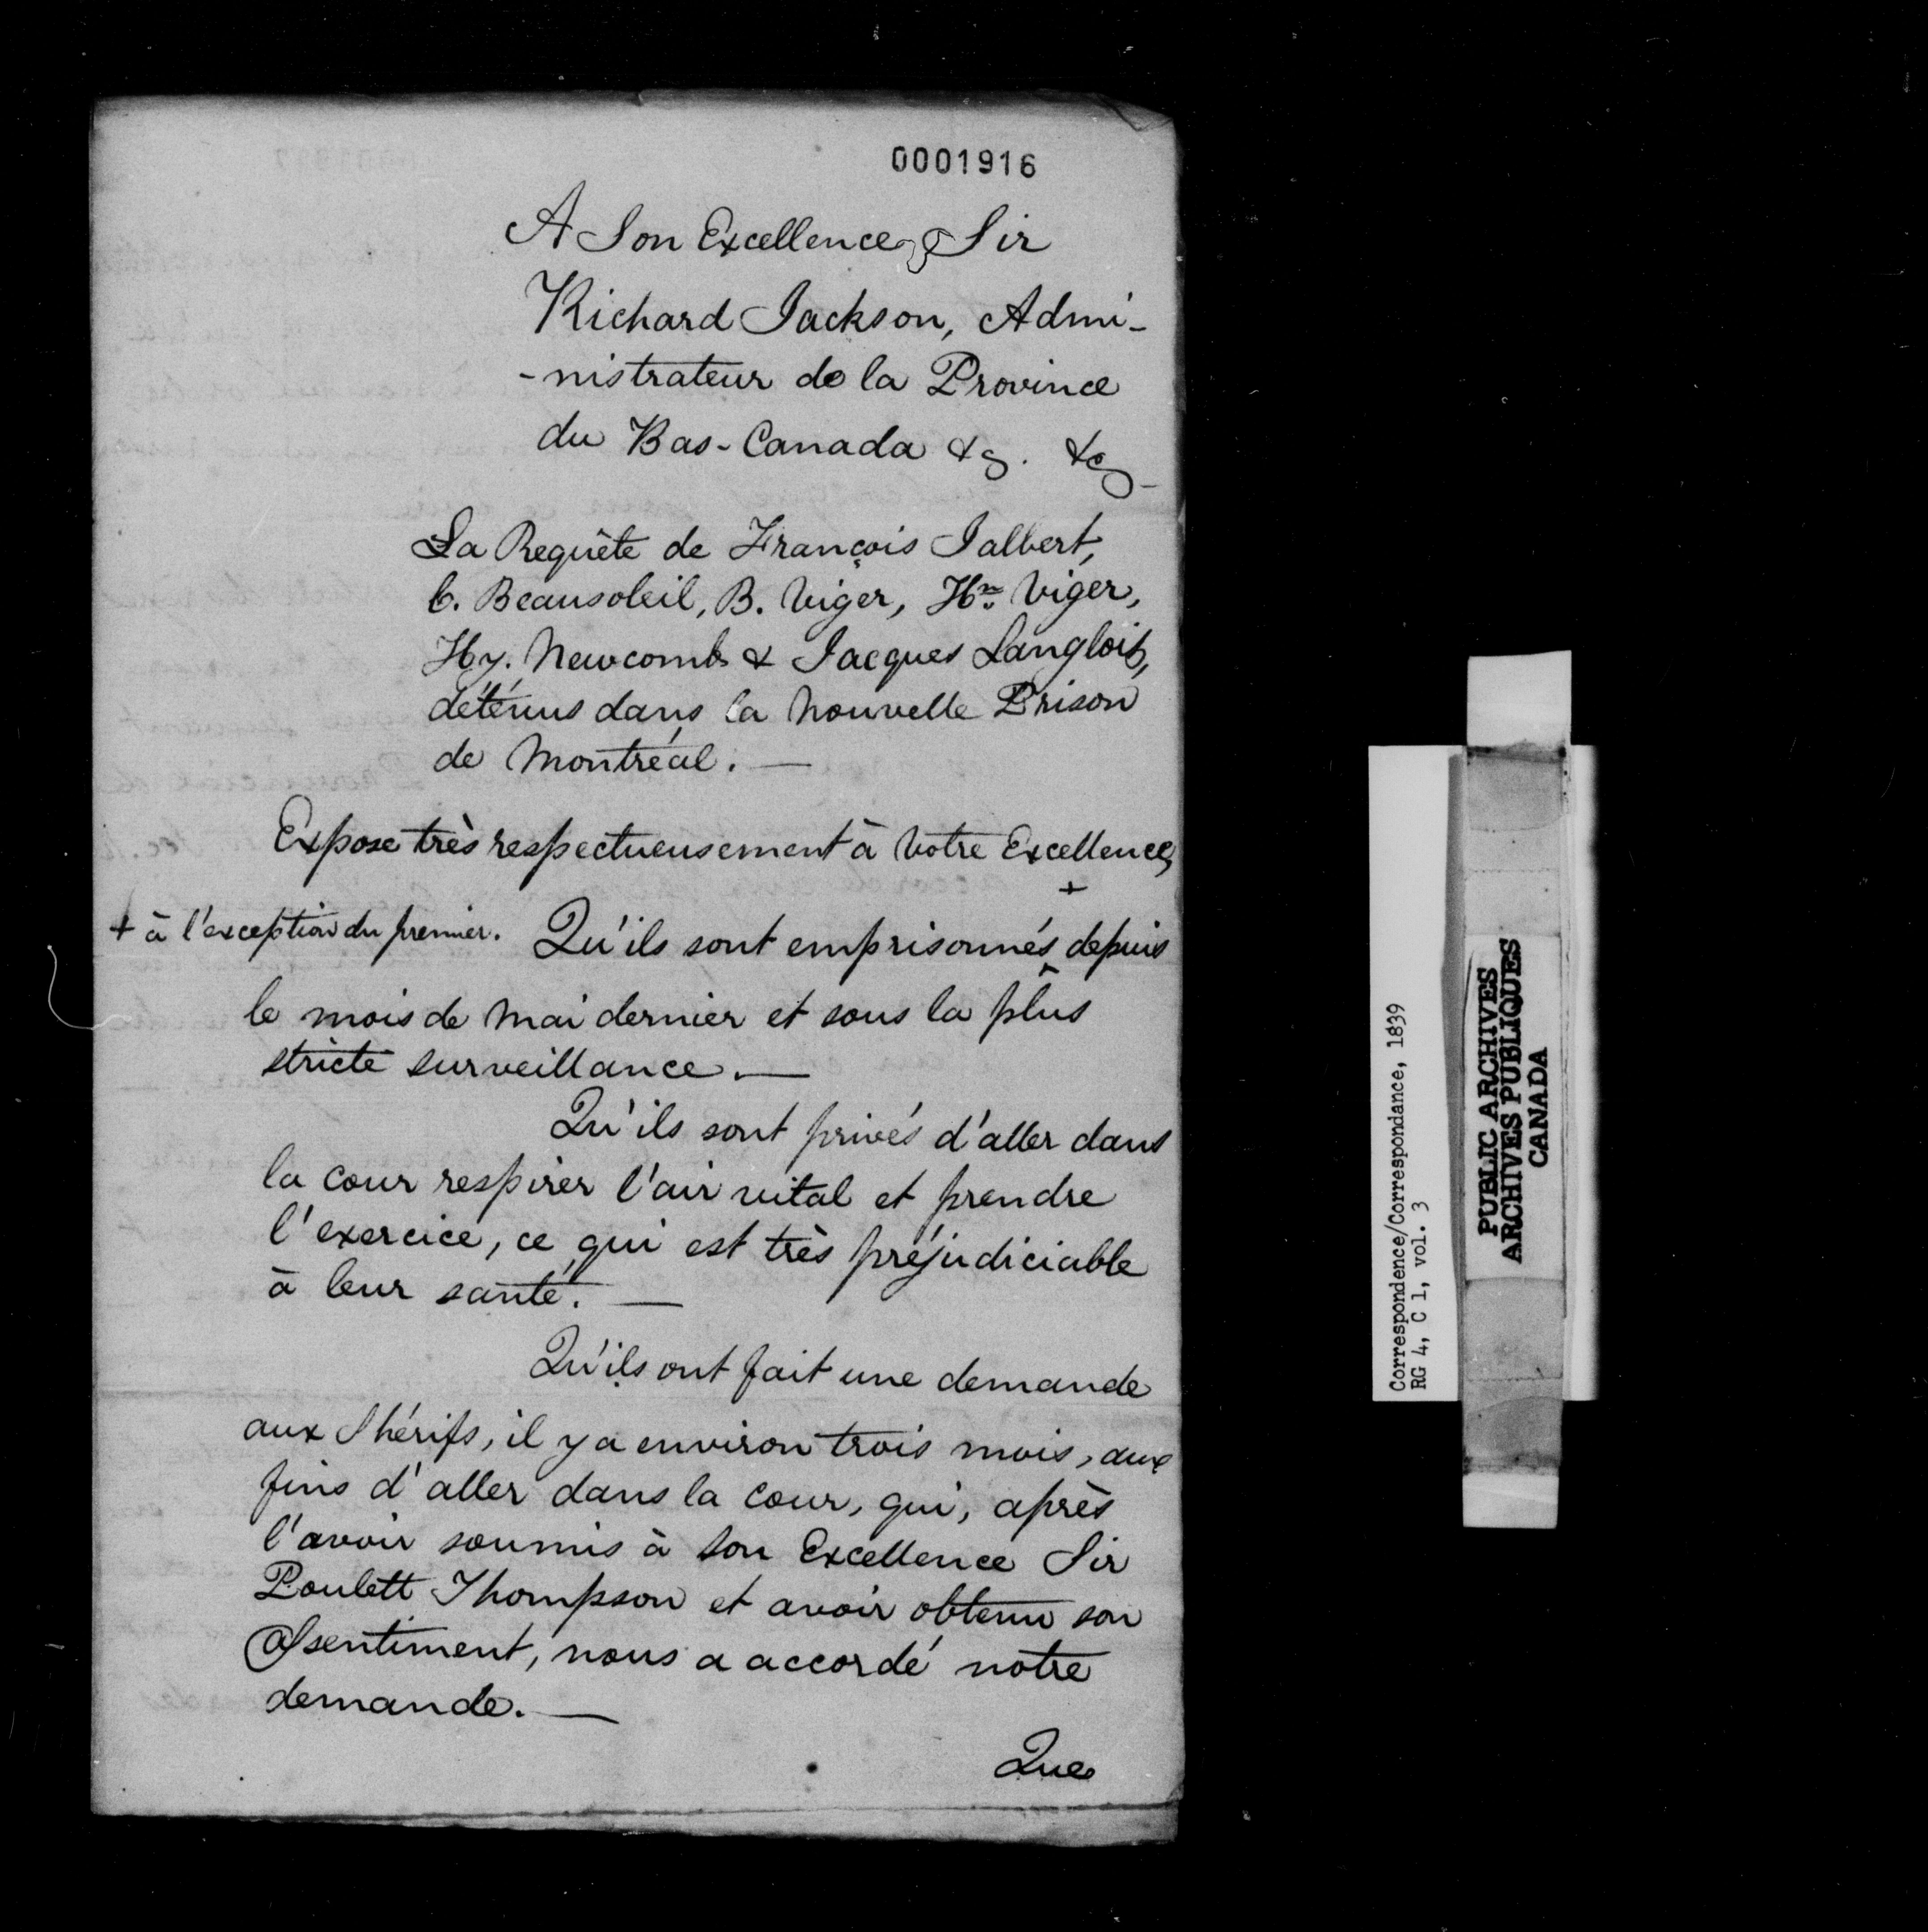 0001916
A Son Excellence, Sir
Richard Jackson, Admi-
-nistrateur de la Province
du Bas-Canada &c. &c
La Requête de François Jalbert,
C. Beausoleil, B. Viger, Hre Viger,
Hy. Newcomb & Jacques Langlois,
détenus dans la Nouvelle Prison
de Montréal. —
Expose très respectueusement à Votre Excellence,
+
+ à l'exception du premier. Qu'ils sont emprisonnés depuis
le mois de Mai dernier et sous la plus
stricte surveillance. —
Qu'ils sont privés d'aller dans
la cour respirer l'air vital et prendre
l'exercice, ce qui est très préjudiciable
à leur santé. —
Qu'ils ont fait une demande
aux Shérifs, il y a environ trois mois, aux
fins d'aller dans la cour, qui, après
l'avoir soumis à Son Excellence Sir
Poulett Thompson et avoir obtenu son
Assentiment, nous a accordé notre
demande. —
Que
Correspondence/Correspondance, 1839
RG 4, C 1, vol. 3
PUBLIC ARCHIVES
ARCHIVES PUBLIQUES
CANADA